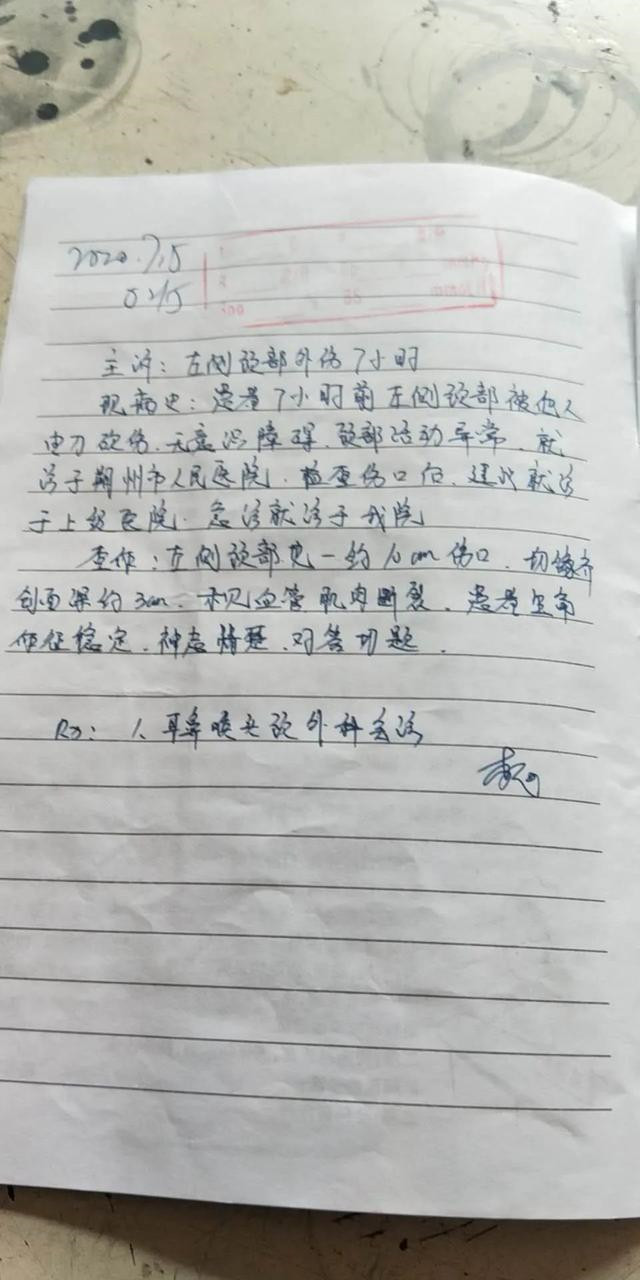 2020.7.5
0215
主诉：左侧颈部外伤7小时
现病史：患者7小时前左侧颈部被他人
由刀砍伤，无意识障碍，颈部活动异常，就
诊于朔州市人民医院，检查伤口后，建议就诊
于上级医院，急诊就诊于我院
查体：左侧颈部见一约10cm伤口，切缘齐
创面深约3cm，未见血管肌肉断裂，患者生命
体征稳定，神志清楚，对答切题。
Rx：1、耳鼻喉头颈外科会诊